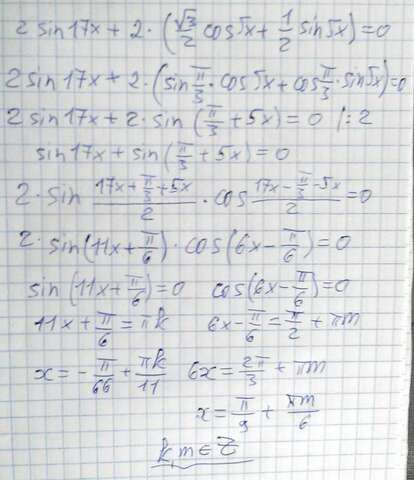 2 sin17x + 2 · (√3/2 cos5x + 1/2 sin5x) = 0
2 sin17x + 2 · (sin π/3 · cos5x + cos π/3 · sin5x) = 0
2 sin17x + 2 · sin (π/3 + 5x) = 0 |: 2
sin17x + sin (π/3 + 5x) = 0
2 · sin (17x + π/3 + 5x)/2 · cos (17x - π/3 - 5x)/2 = 0
2 · sin(11x + π/6) · cos(6x - π/6) = 0
sin (11x + π/6) = 0 cos(6x - π/6) = 0
11x + π/6 = πk 6x - π/6 = π/2 + πm
x = - π/66 + πk/11 6x = 2π/3 + πm
x = π/9 + πm/6
k, m ∈ Z